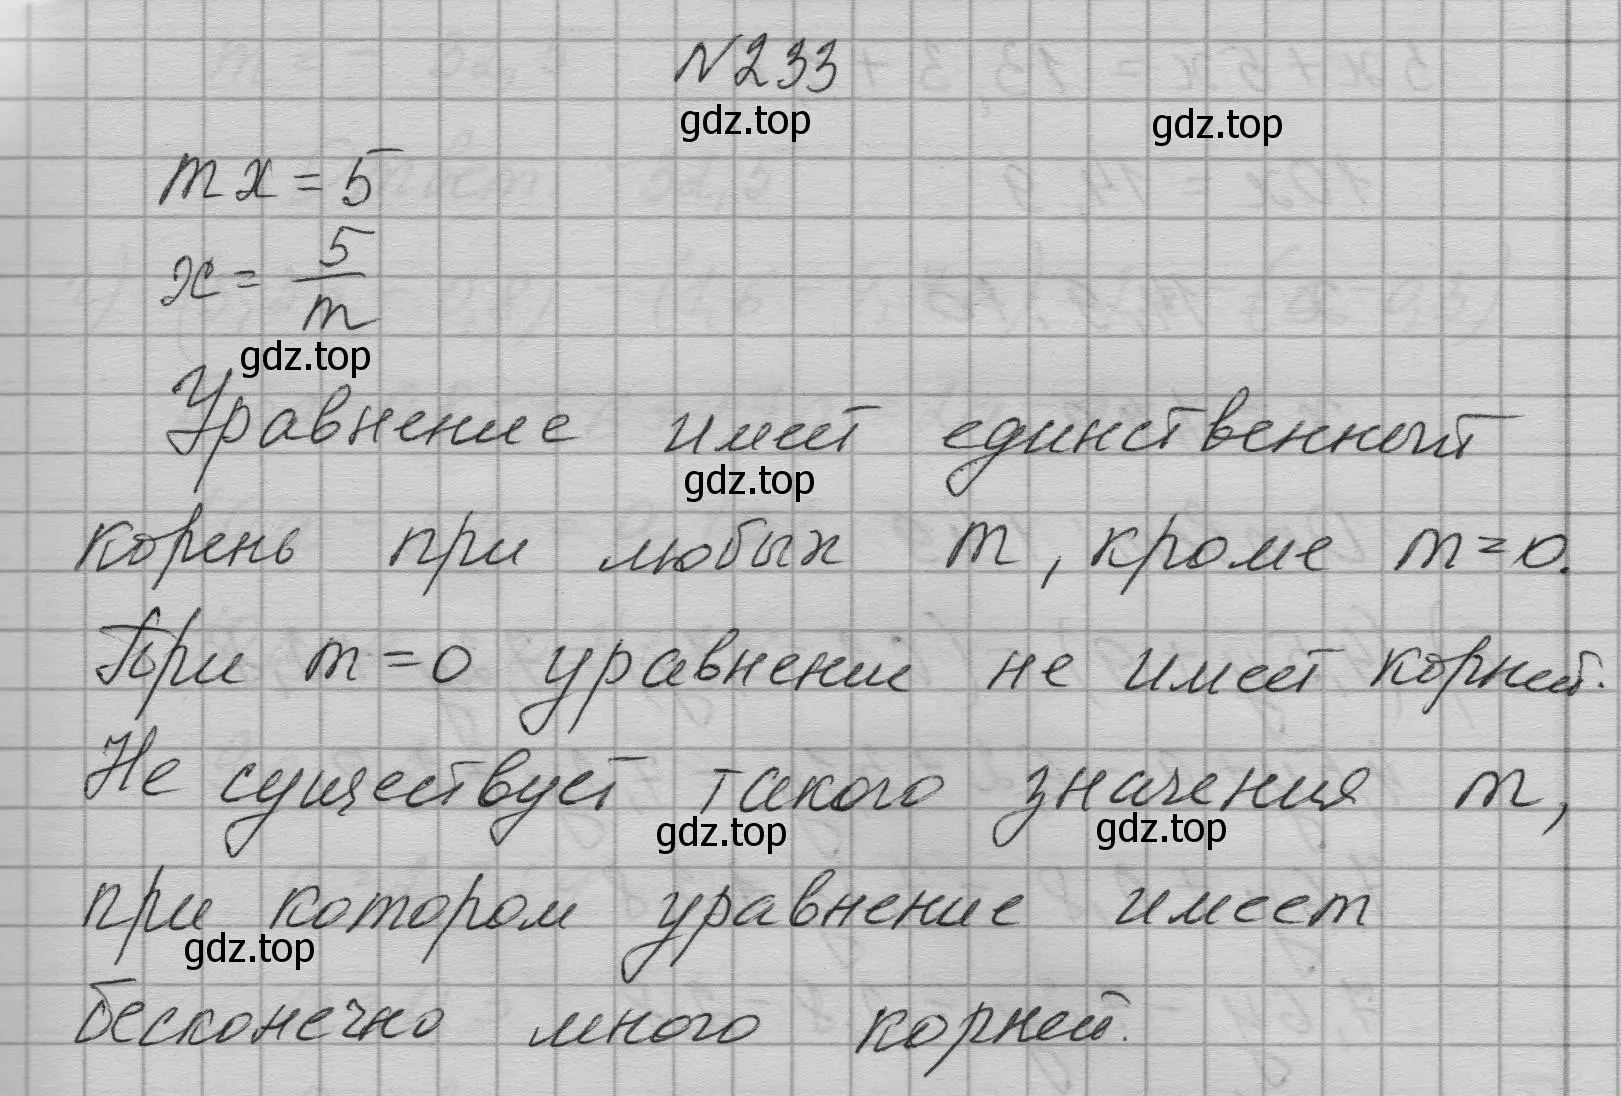 №233
gdz.top
gdz.top
mx = 5
x = 5/m
gdz.top
Уравнение имеет единственный
gdz.top
корень при любых m, кроме m=0.
При m=0 уравнение не имеет корней.
Не существует такого значения m,
gdz.top
gdz.top
при котором уравнение имеет
gdz.top
бесконечно много корней.